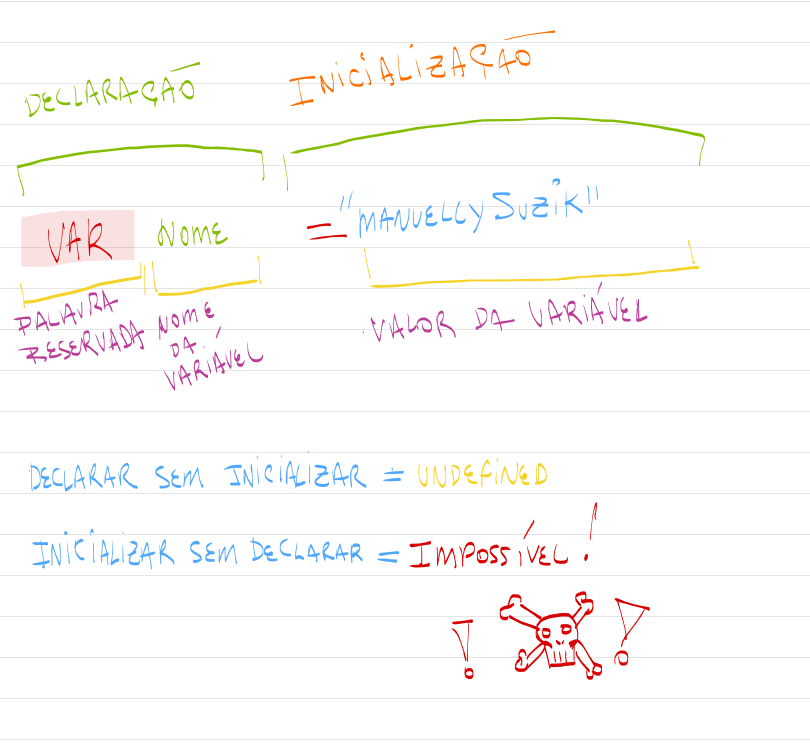 DECLARAÇÃO INICIALIZAÇÃO
VAR NOME = "MANUELLY SUZIK"
PALAVRA RESERVADA
NOME DA VARIÁVEL
VALOR DA VARIÁVEL
DECLARAR SEM INICIALIZAR = UNDEFINED
INICIALIZAR SEM DECLARAR = IMPOSSÍVEL!
! !